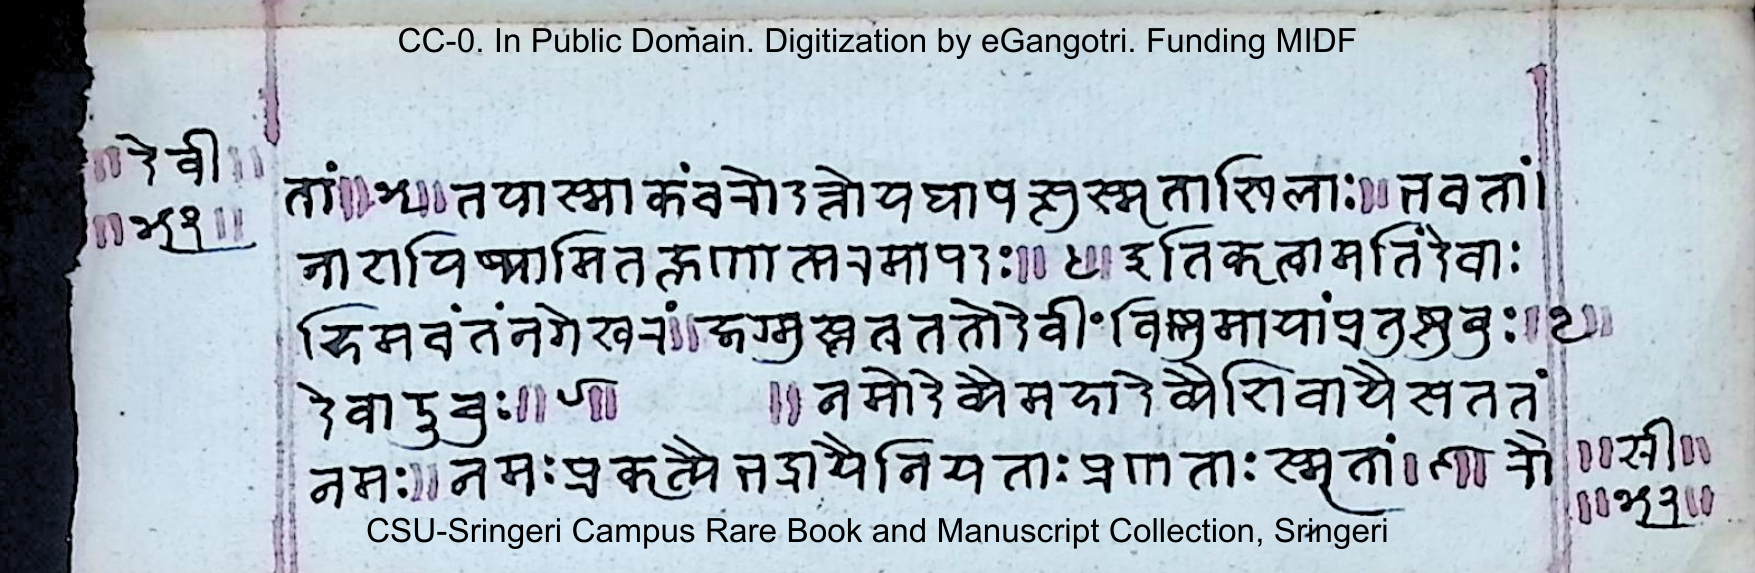 CC-0. In Public Domain. Digitization by eGangotri. Funding MIDF
॥देवी॥
तां॥५॥तयास्माकंवरोदत्तोयथापत्सुस्मृताखिलाः॥भवतां
नाशयिष्यामितत्क्षणात्परमापदः॥६॥इतिकृत्वामतिंदेवाः
हिमवंतंनगेश्वरं॥जग्मुस्तत्रततोदेवीं विष्णुमायांप्रतुष्टुवुः॥७॥
देवाऊचुः॥८॥ ॥नमोदेव्यैमहादेव्यैशिवायैसततं
नमः॥नमःप्रकृत्यैभद्रायैनियताःप्रणताःस्मृतां॥९॥रौ
CSU-Sringeri Campus Rare Book and Manuscript Collection, Sringeri